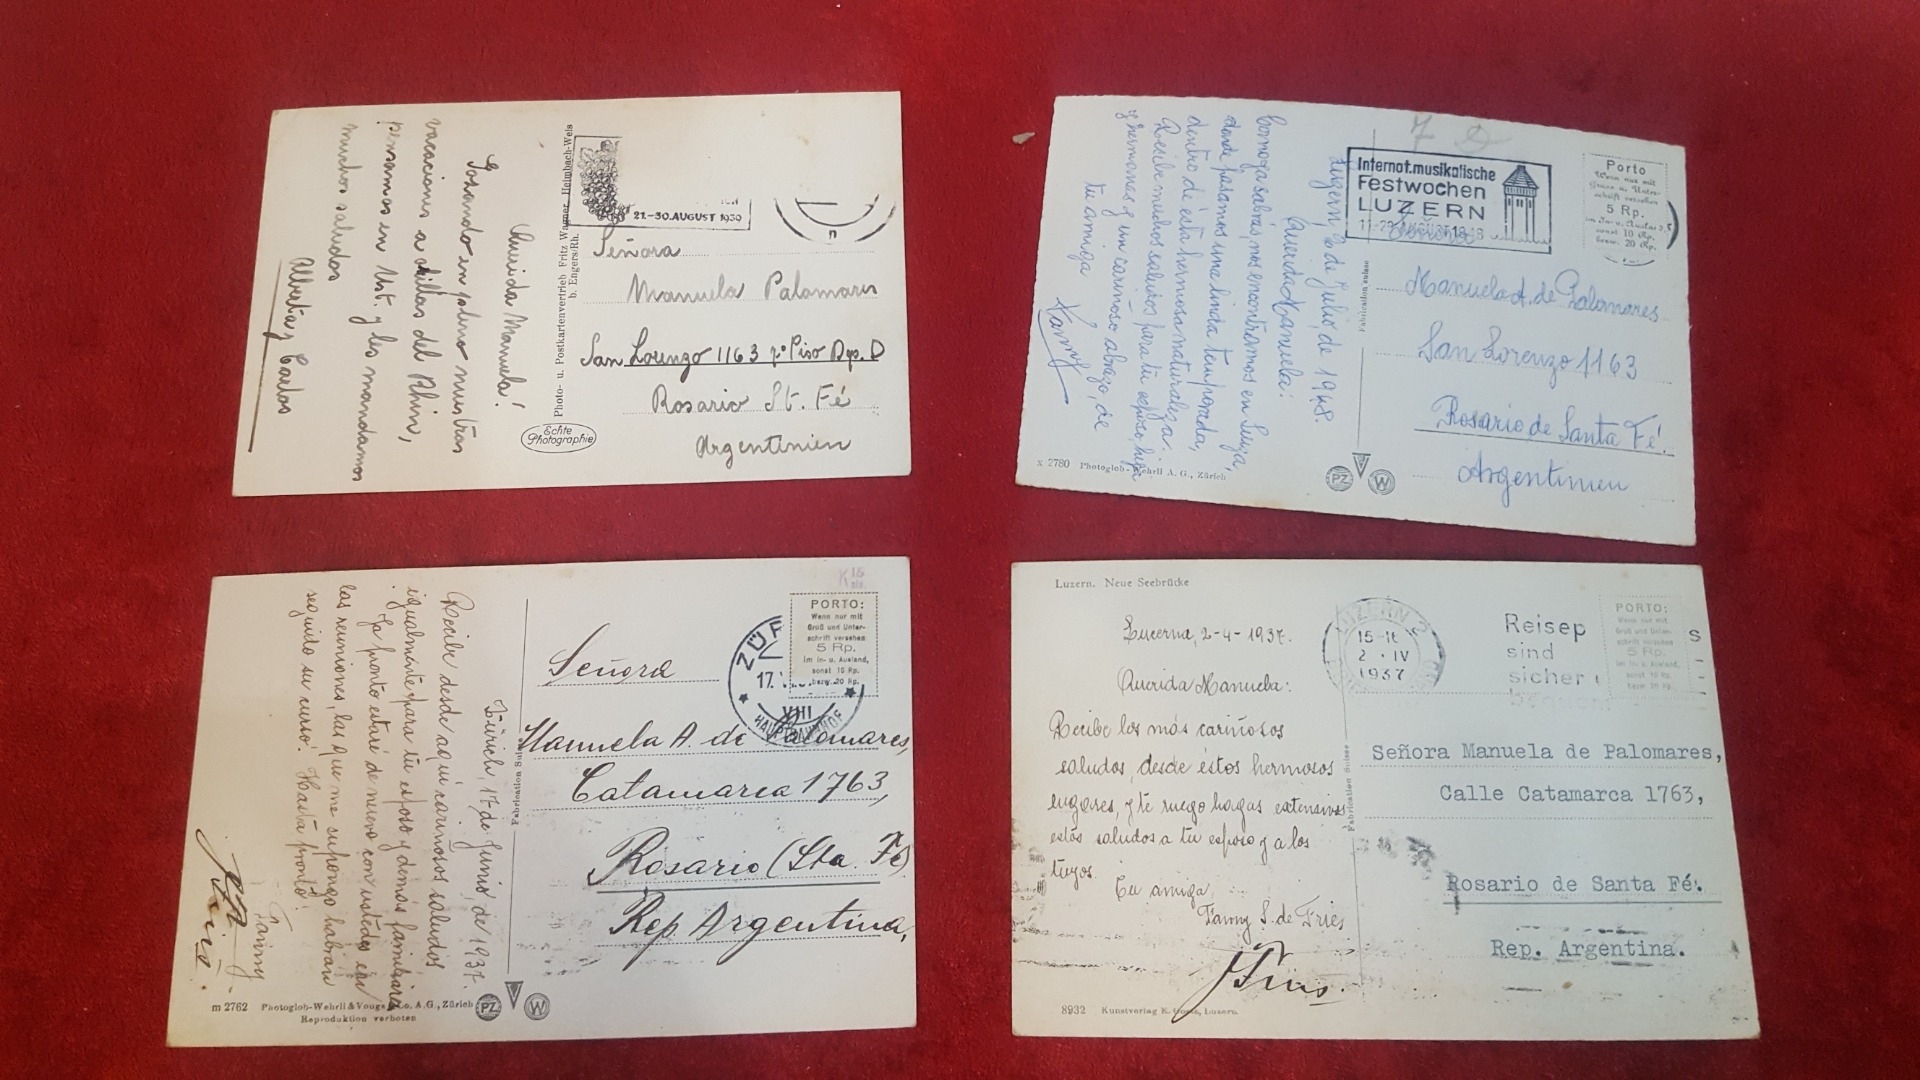 Querida Manuela!
Gozando en pleno nuestras
vacaciones a orillas del Rhin,
pensamos en Ust. y les mandamos
muchos saludos
Alberta y Carlos
Photo- u. Postkartenvertrieb Fritz Wagner, Heimbach-Weis
b. Engers/Rh.
Echte
Photographie
21.-30. AUGUST 1950
Señora
Manuela Palomares
San Lorenzo 1163 2º Piso Dep. D
Rosario St. Fé
Argentinien
Luzern, de Julio, de 1948.
Querida Manuela:
sabrás, nos encontramos en Suiza,
donde pasamos una linda temporada,
dentro de ésta hermosa naturaleza.
Recibe muchos saludos para tu esposo, hija
y hermanos y un cariñoso abrazo, de
tu amiga
Fanny
x 2780 Photoglob-Wehrli A. G., Zürich
Fabrication suisse
PZ
W
Internat. musikalische
Festwochen
LUZERN
Porto
Wenn nur mit
Gruss u. Unter-
schrift versehen
5 Rp.
im In- u. Ausland
sonst 10 Rp.
bezw. 20 Rp.
Señora
Manuela A. de Palomares
San Lorenzo 1163
Rosario de Santa Fé.
Argentinien
Zürich, 17 de Junio, de 1937.
Recibe desde aquí cariñosos saludos
igualmente para tu esposo y demás familiares
Ya pronto estaré de nuevo con ustedes en
las reuniones, las que me supongo habrán
seguido su curso! Hasta pronto!
Fanny
m 2762 Photoglob-Wehrli & Vouga & Co. A. G., Zürich
Reproduktion verboten
Fabrication Suisse
PZ
W
ZÜR
17.
VIII
HAUPTBAHNHOF
PORTO:
Wenn nur mit
Gruß und Unter-
schrift versehen
5 Rp.
im In- u. Ausland,
sonst 10 Rp.
bezw. 20 Rp.
Señora
Manuela A. de Palomares,
Catamarca 1763,
Rosario (Sta. Fé)
Rep Argentina,
Luzern. Neue Seebrücke
Lucerna, 2-4-1937.
Querida Manuela:
Recibe los más cariñosos
saludos, desde éstos hermosos
lugares, y te ruego hagas extensivos
estos saludos a tu esposo y a los
tuyos.
Tu amiga,
Fanny S. de Fries
8932 Kunstverlag K. Luzern.
Fabrication Suisse
LUZERN 2
2. IV
1937
Reisep
sind
sicher
bequem
PORTO:
Wenn nur mit
Gruß und Unter-
schrift versehen
5 Rp.
im In- u. Ausland,
sonst 10 Rp.
bezw. 20 Rp.
Señora Manuela de Palomares,
Calle Catamarca 1763,
Rosario de Santa Fé.
Rep. Argentina.